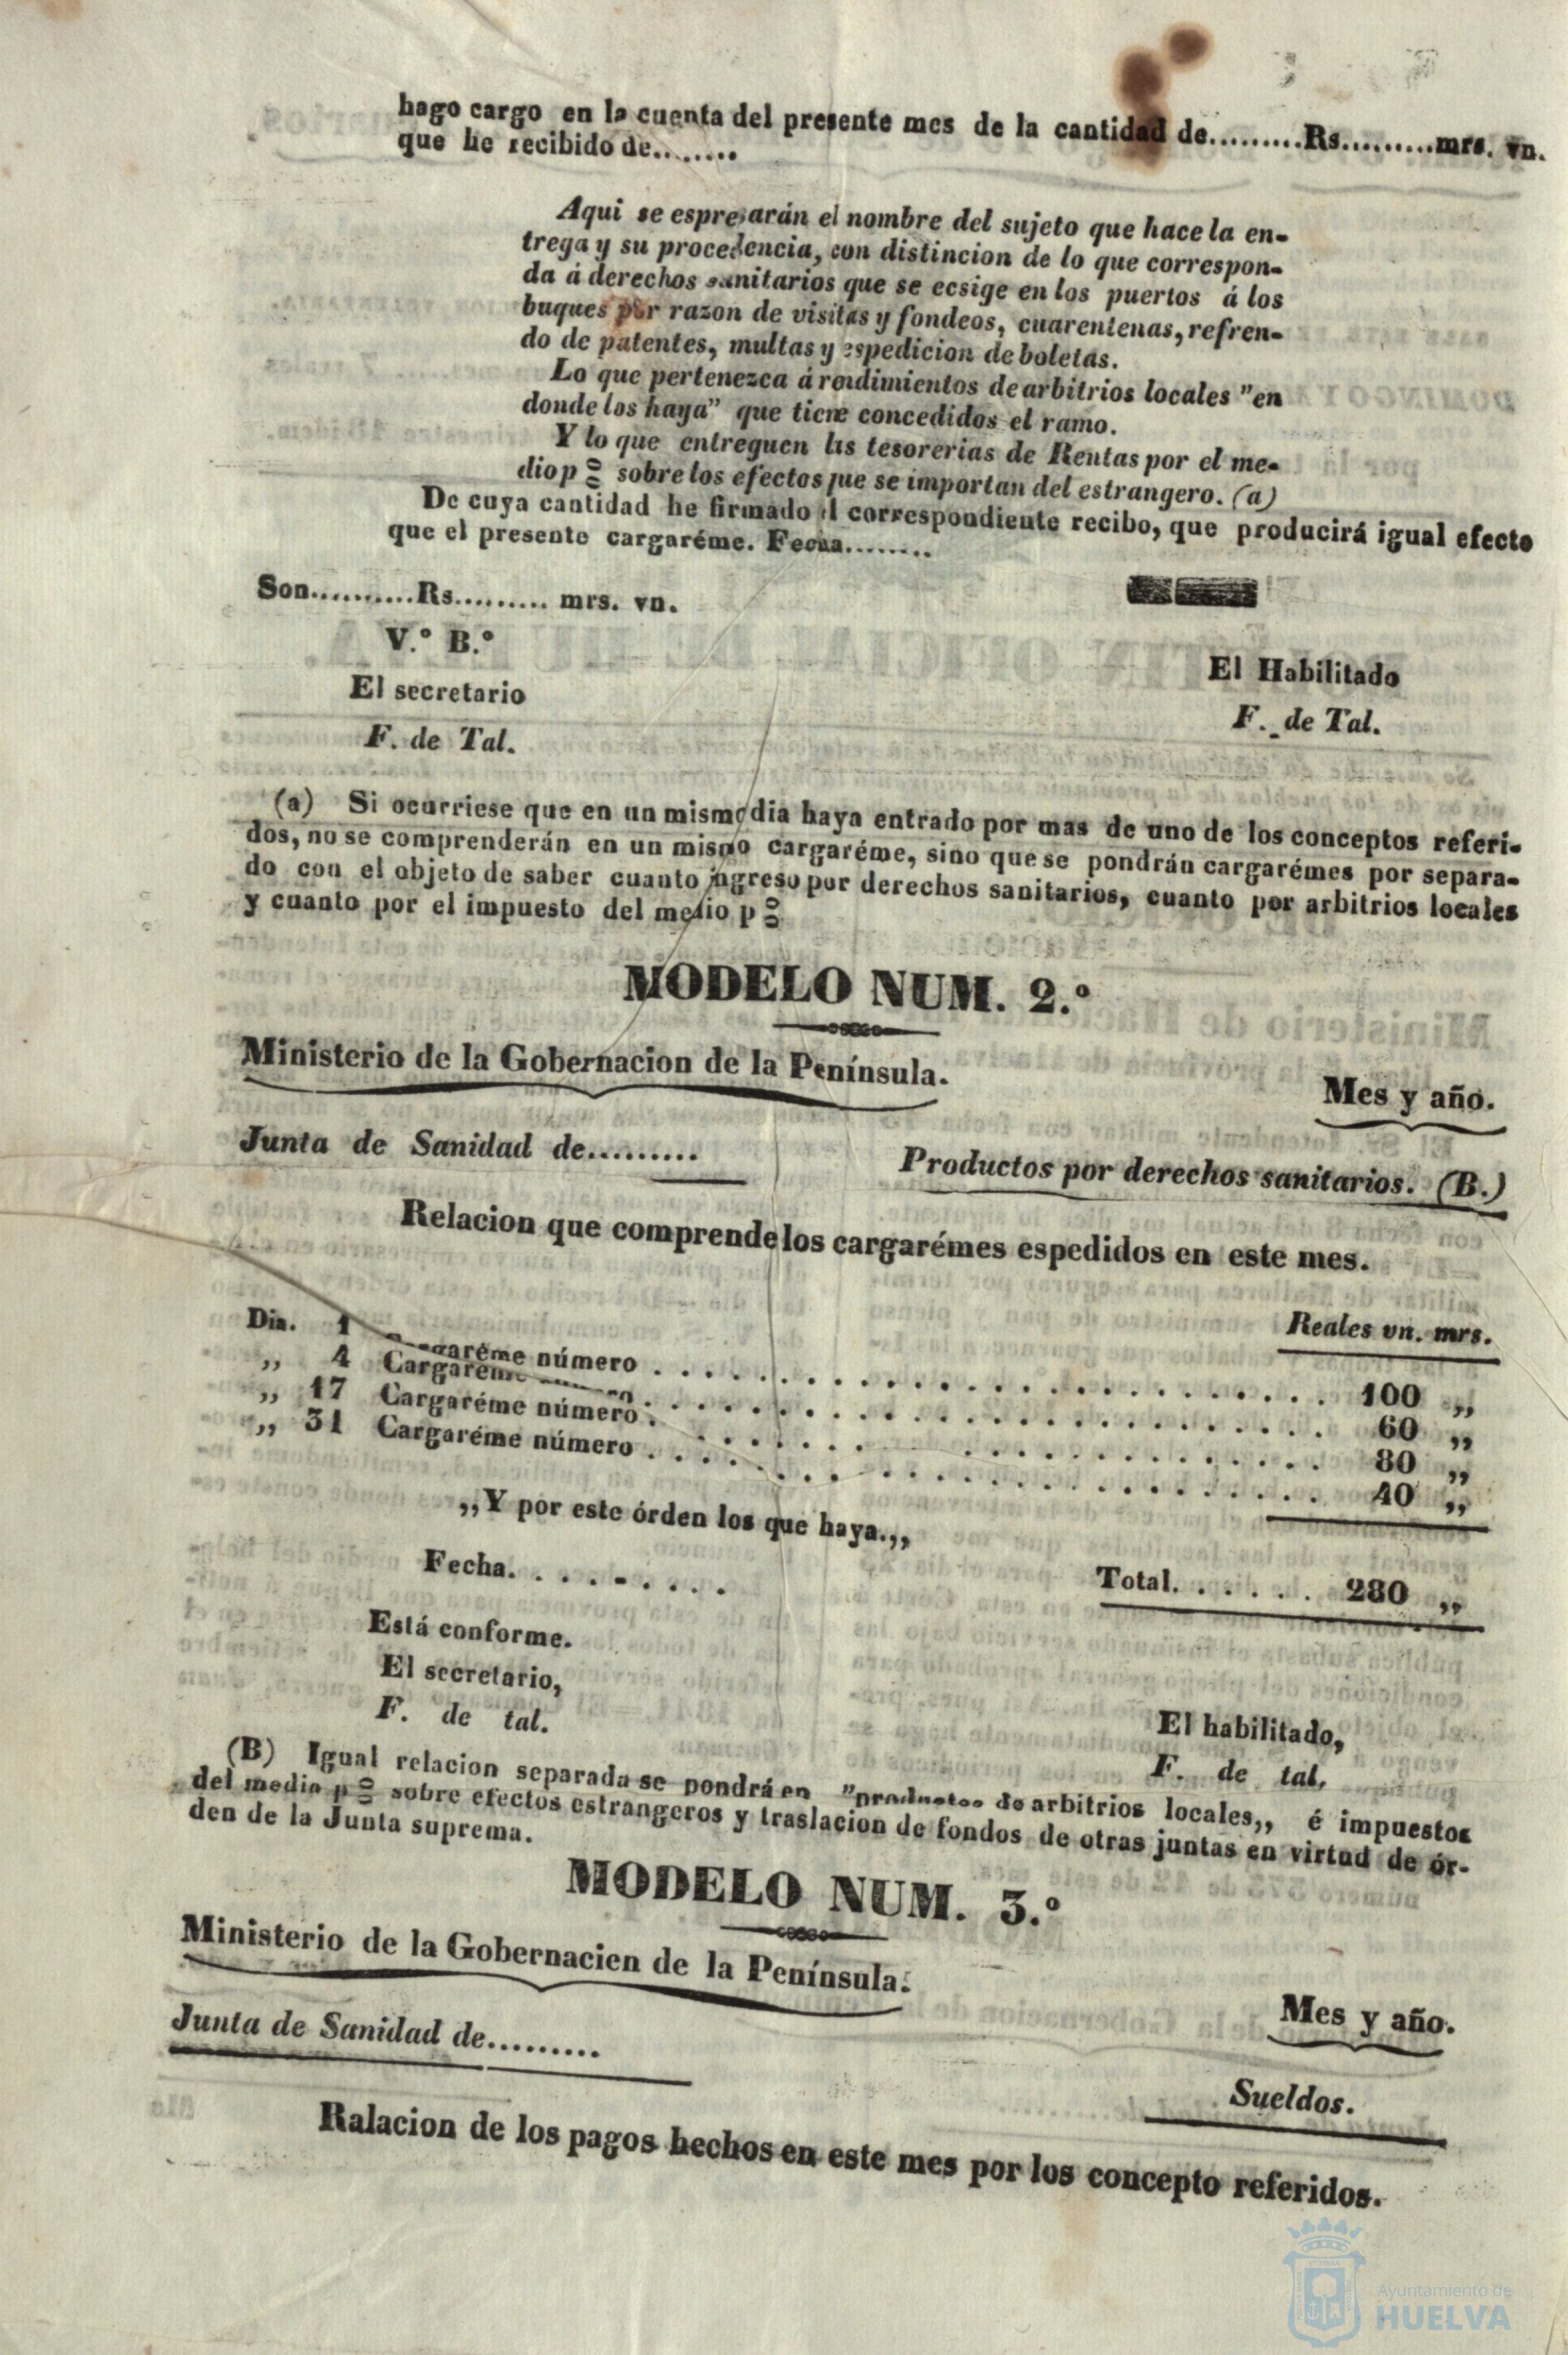 hago cargo en la cuenta del presente mes de la cantidad de.........Rs.........mrs. vn.
que he recibido de........
Aqui se espresarán el nombre del sujeto que hace la en-
trega y su procedencia, con distincion de lo que correspon-
da á derechos sanitarios que se ecsige en los puertos á los
buques por razon de visitas y fondeos, cuarentenas, refren-
do de patentes, multas y espedicion de boletas.
Lo que pertenezca á rendimientos de arbitrios locales "en
donde los haya" que tiene concedidos el ramo.
Y lo que entreguen las tesorerias de Rentas por el me-
dio p 0/0 sobre los efectos que se importan del estrangero. (a)
De cuya cantidad he firmado el correspondiente recibo, que producirá igual efecto
que el presente cargaréme. Fecha........
Son..........Rs......... mrs. vn.
V.º B.º
El secretario
F. de Tal.
El Habilitado
F. de Tal.
(a) Si ocurriese que en un mismo dia haya entrado por mas de uno de los conceptos referi-
dos, no se comprenderán en un mismo cargaréme, sino que se pondrán cargarémes por separa-
do con el objeto de saber cuanto ingreso por derechos sanitarios, cuanto por arbitrios locales
y cuanto por el impuesto del medio p 0/0
MODELO NUM. 2.º
Ministerio de la Gobernacion de la Península.
Mes y año.
Junta de Sanidad de.........
Productos por derechos sanitarios. (B.)
Relacion que comprende los cargarémes espedidos en este mes.
Reales vn. mrs.
Dia. 1 Cargaréme número . . . . . . . . . . . . . . . . . . . . . . 100 ,,
,, 4 Cargaréme número . . . . . . . . . . . . . . . . . . . . . . 60 ,,
,, 17 Cargaréme número . . . . . . . . . . . . . . . . . . . . . . 80 ,,
,, 31 Cargaréme número . . . . . . . . . . . . . . . . . . . . . . 40 ,,
,,Y por este órden los que haya.,,
Fecha. . . . . - . . . .
Total. . . . . . 280 ,,
Está conforme.
El secretario,
F. de tal.
El habilitado,
F. de tal.
(B) Igual relacion separada se pondrá en "productos de arbitrios locales,, é impuestos
del medio p 0/0 sobre efectos estrangeros y traslacion de fondos de otras juntas en virtud de ór-
den de la Junta suprema.
MODELO NUM. 3.º
Ministerio de la Gobernacien de la Península.
Mes y año.
Junta de Sanidad de.........
Sueldos.
Ralacion de los pagos hechos en este mes por los concepto referidos.
Ayuntamiento de
HUELVA